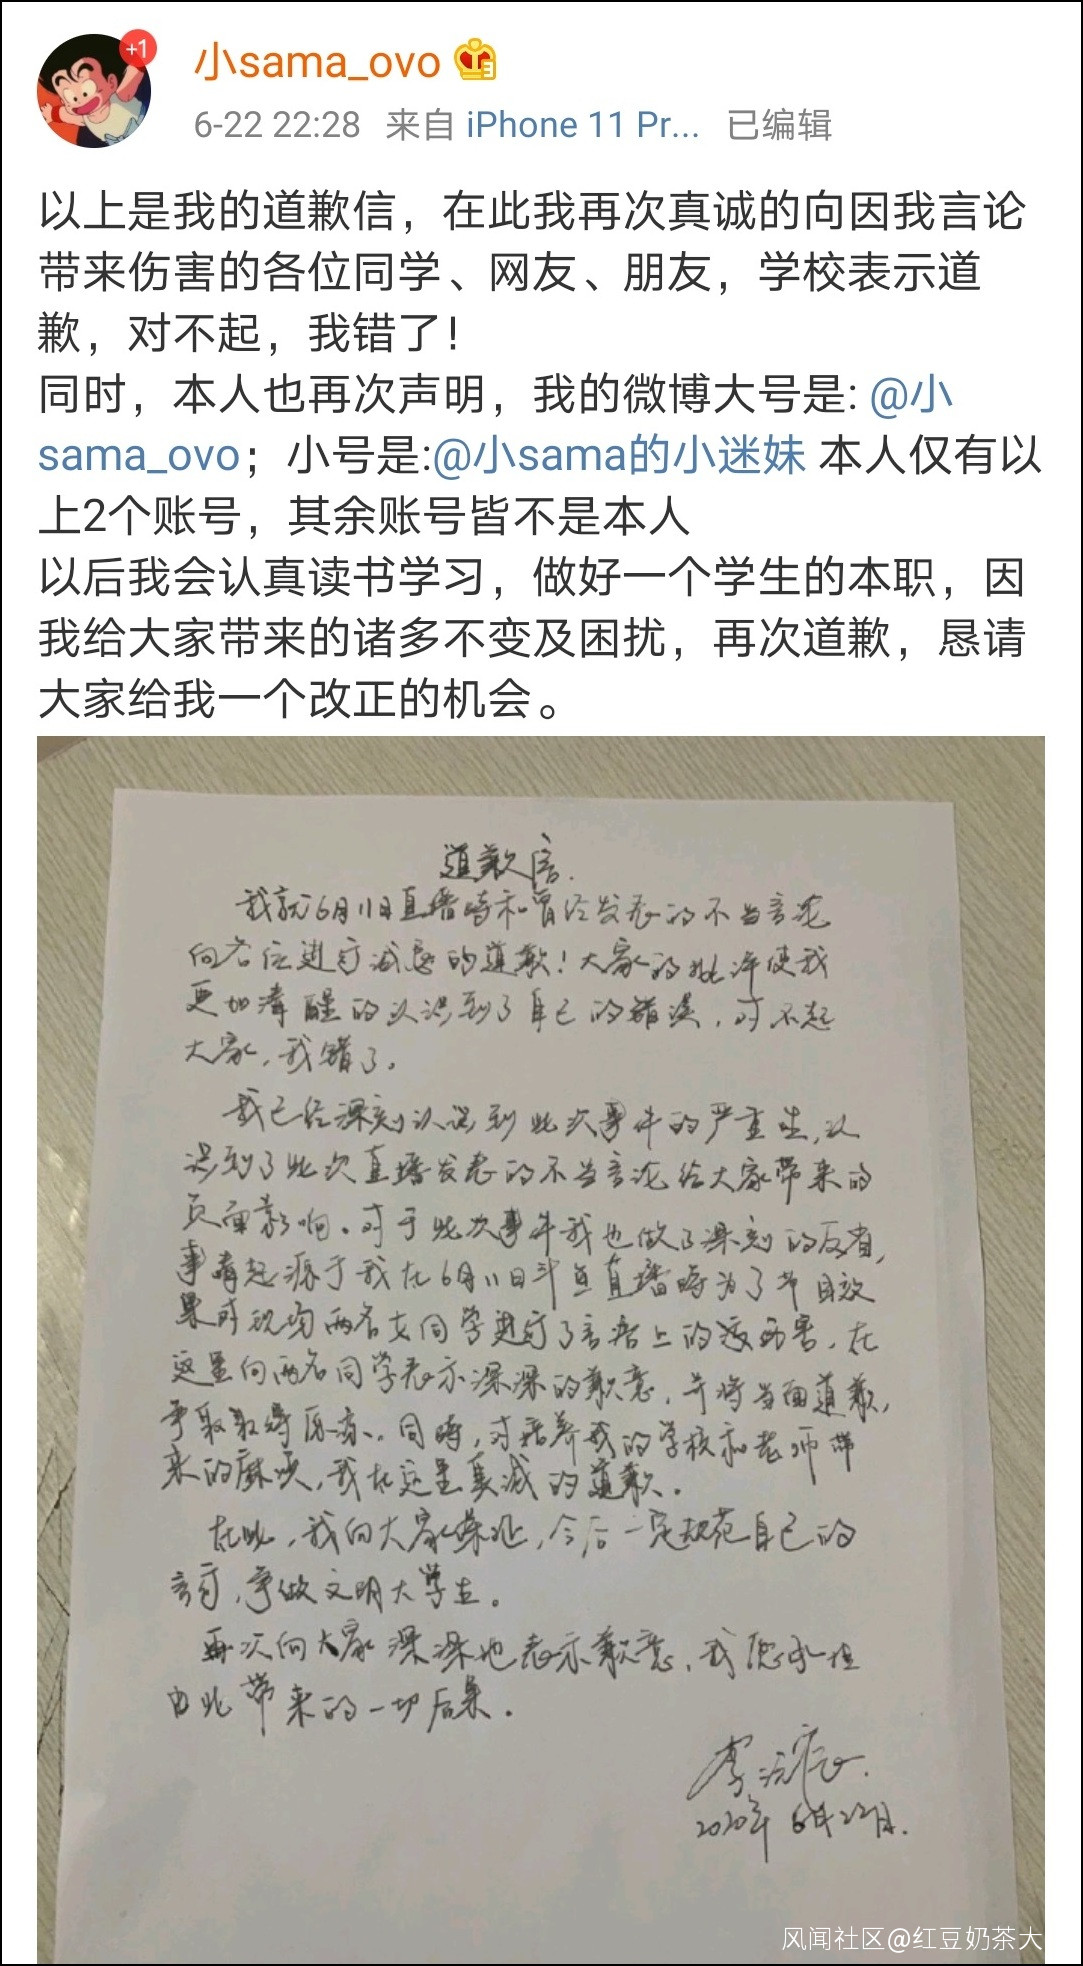 +1
小sama_ovo
6-22 22:28 来自 iPhone 11 Pr... 已编辑
以上是我的道歉信，在此我再次真诚的向因我言论
带来伤害的各位同学、网友、朋友，学校表示道
歉，对不起，我错了！
同时，本人也再次声明，我的微博大号是: @小
sama_ovo；小号是:@小sama的小迷妹 本人仅有以
上2个账号，其余账号皆不是本人
以后我会认真读书学习，做好一个学生的本职，因
我给大家带来的诸多不变及困扰，再次道歉，恳请
大家给我一个改正的机会。
道歉信.
我就6月11日直播时和曾经发表的不当言论
向各位进行诚恳的道歉！大家的批评使我
更加清醒的认识到了自己的错误，对不起
大家，我错了。
我已经深刻认识到此次事件的严重性，认
识到了此次直播发表的不当言论给大家带来的
负面影响。对于此次事件我也做了深刻的反省，
事情起源于我在6月11日斗鱼直播时为了节目效
果对现场两名女同学进行了言语上的伤害，在
这里向两名同学表示深深的歉意，并将当面道歉，
争取取得原谅。同时，对培养我的学校和老师带
来的麻烦，我在这里真诚的道歉。
在此，我向大家保证，今后一定规范自己的
言行，争做文明大学生。
再次向大家深深地表示歉意，我愿承担
由此带来的一切后果。
2020年6月22日.
风闻社区@红豆奶茶大